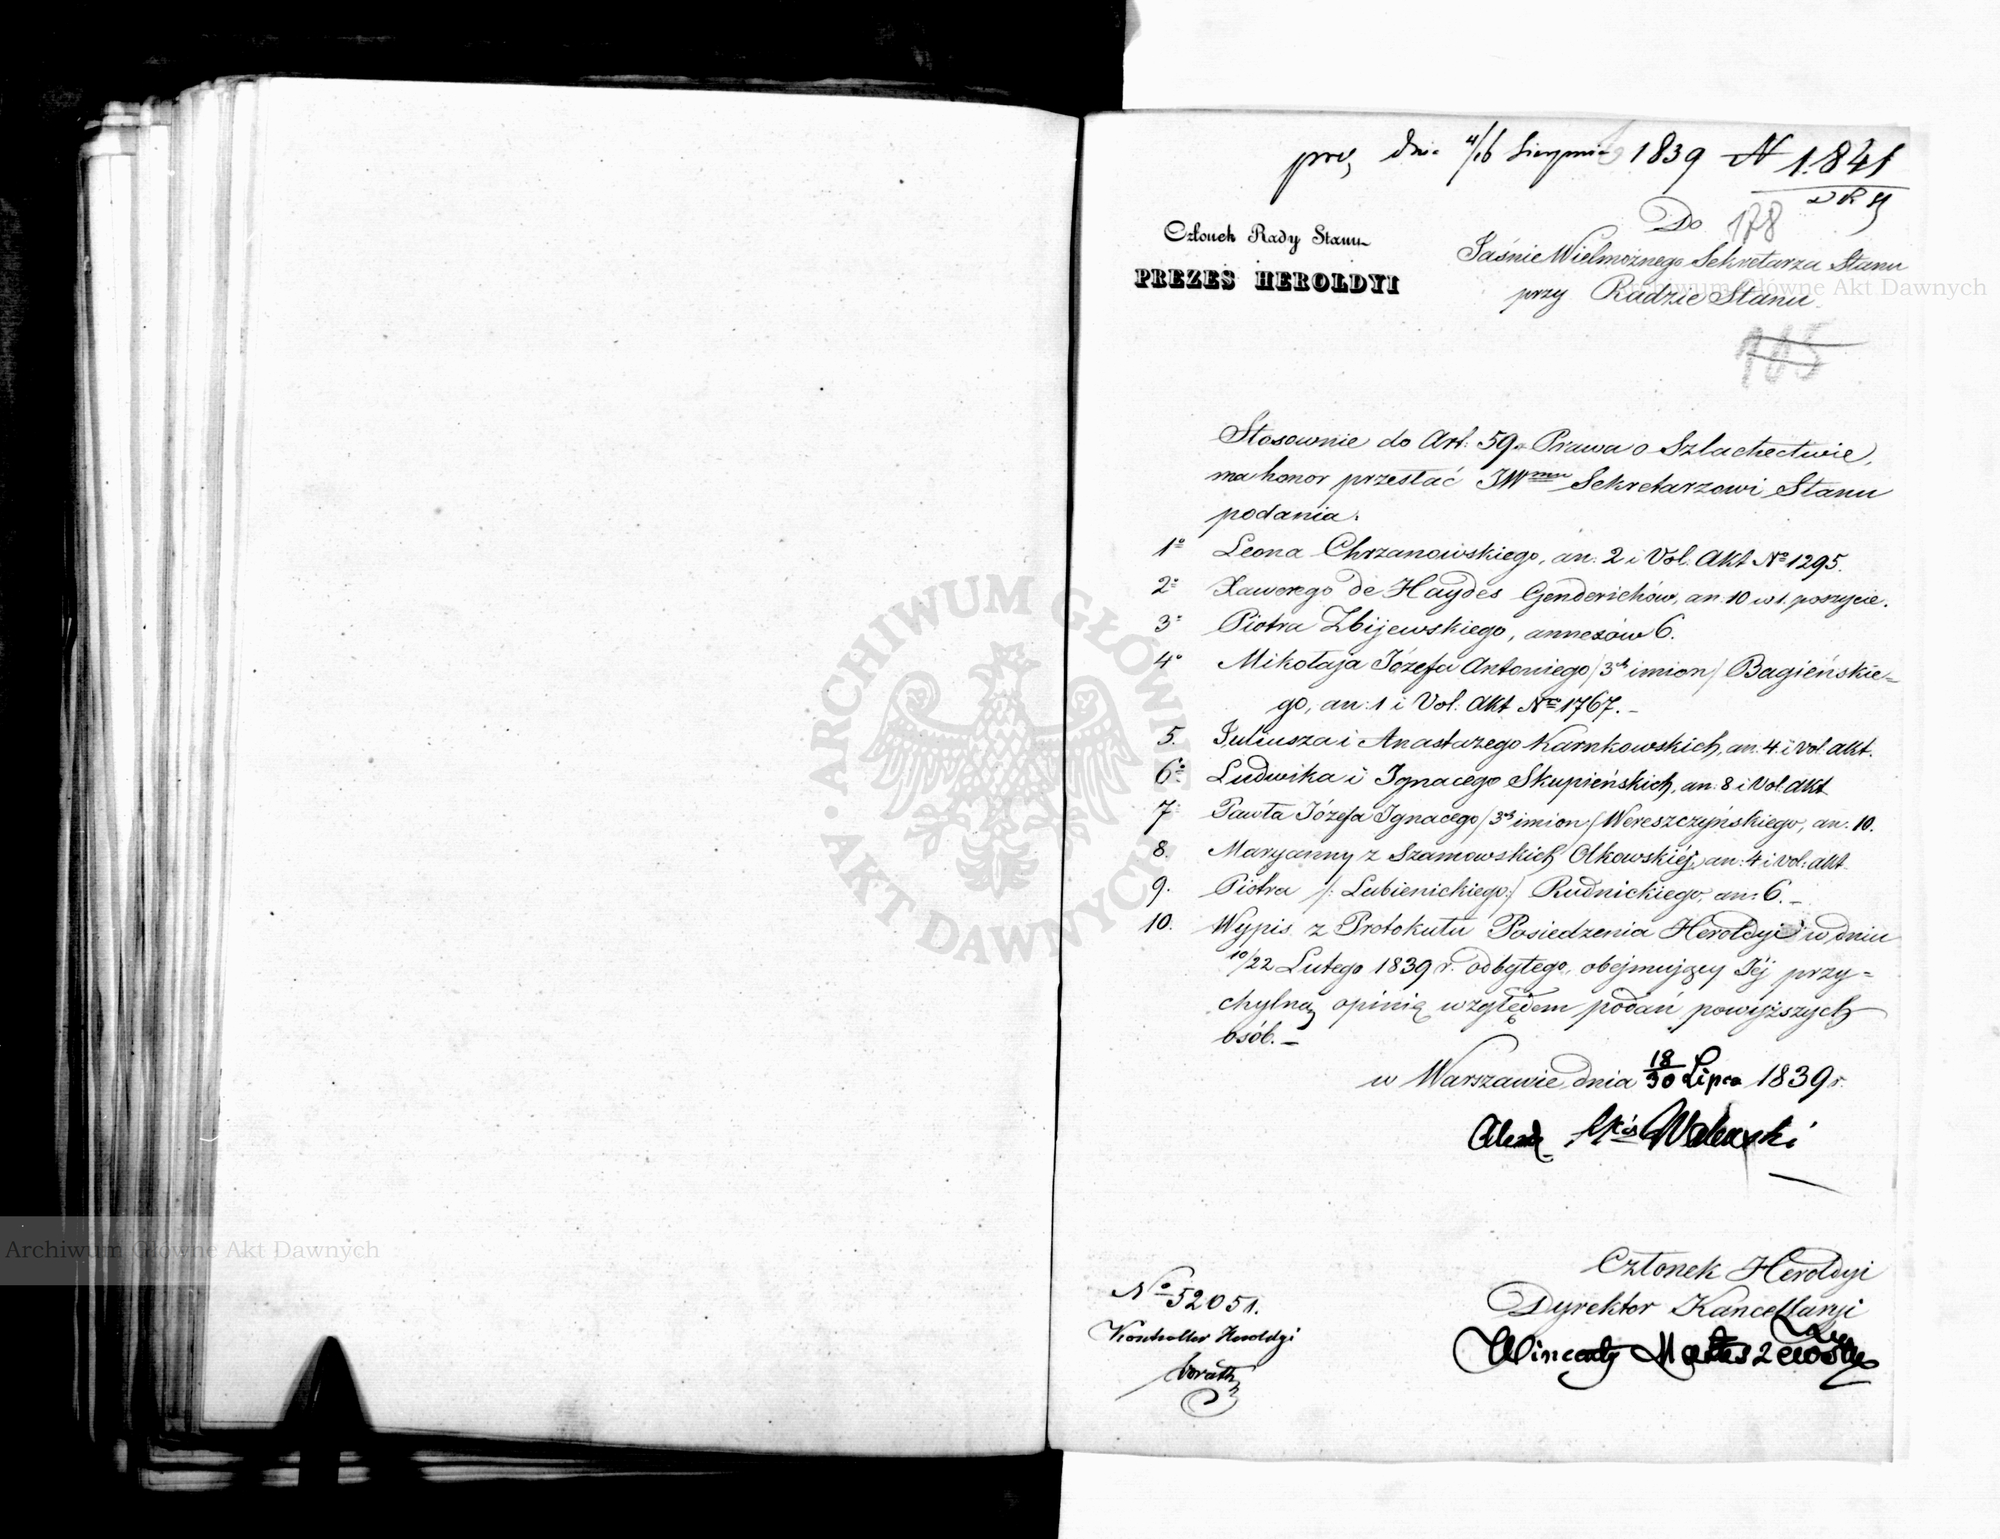 prez dnia 4/16 Sierpnia 1839 N 1.841
D R S
Do 178
Jaśnie Wielmożnego Sekretarza Stanu
przy Radzie Stanu.
Członek Rady Stanu
PREZES HEROLDYI
105
Stosownie do Art: 59. Prawa o Szlachectwie,
ma honor przesłać JWmu Sekretarzowi Stanu
podania:
1o Leona Chrzanowskiego, an: 2 i Vol: Akt No 1295.
2o Xawerego de Haydes Genderichów, an: 10 w 1. poszycie.
3o Piotra Zbijewskiego, annexów 6.
4o Mikołaja Józefa Antoniego /3ch imion/ Bagieńskie=
go, an: 1 i Vol: Akt No 1767. –
5. Juliusza i Anastazego Karnkowskich, an: 4. i vol: akt.
6o Ludwika i Ignacego Skupieńskich, an: 8 i Vol: akt
7o Pawła Józefa Ignacego /3ch imion/ Wereszczyńskiego, an: 10.
8. Maryanny z Szamowskich Olkowskiéj, an: 4 i vol: akt.
9. Piotra /: Lubienickiego:/ Rudnickiego, an: 6. –
10. Wypis z Protokułu Posiedzenia Heroldyi w dniu
10/22 Lutego 1839 r. odbytego, obejmujący Jéj przy=
chylną opinią względem podań powyższych
osób. –
w Warszawie dnia 18/30 Lipca 1839 r.
Alexa. Walewski
Członek Heroldyi
Dyrektor Kancellaryi
Wincenty Matuszewski
No 52051.
Kontroller Heroldyi
ARCHIWUM GŁÓWNE AKT DAWNYCH
Archiwum Główne Akt Dawnych
Archiwum Główne Akt Dawnych